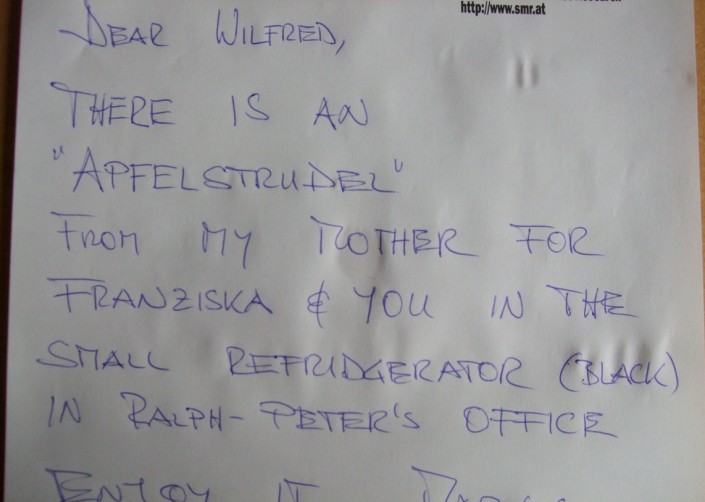 http://www.smr.at
DEAR WILFRED,
THERE IS AN
"APFELSTRUDEL"
FROM MY MOTHER FOR
FRANZISKA & YOU IN THE
SMALL REFRIDGERATOR (BLACK)
IN RALPH-PETER'S OFFICE
ENJOY IT